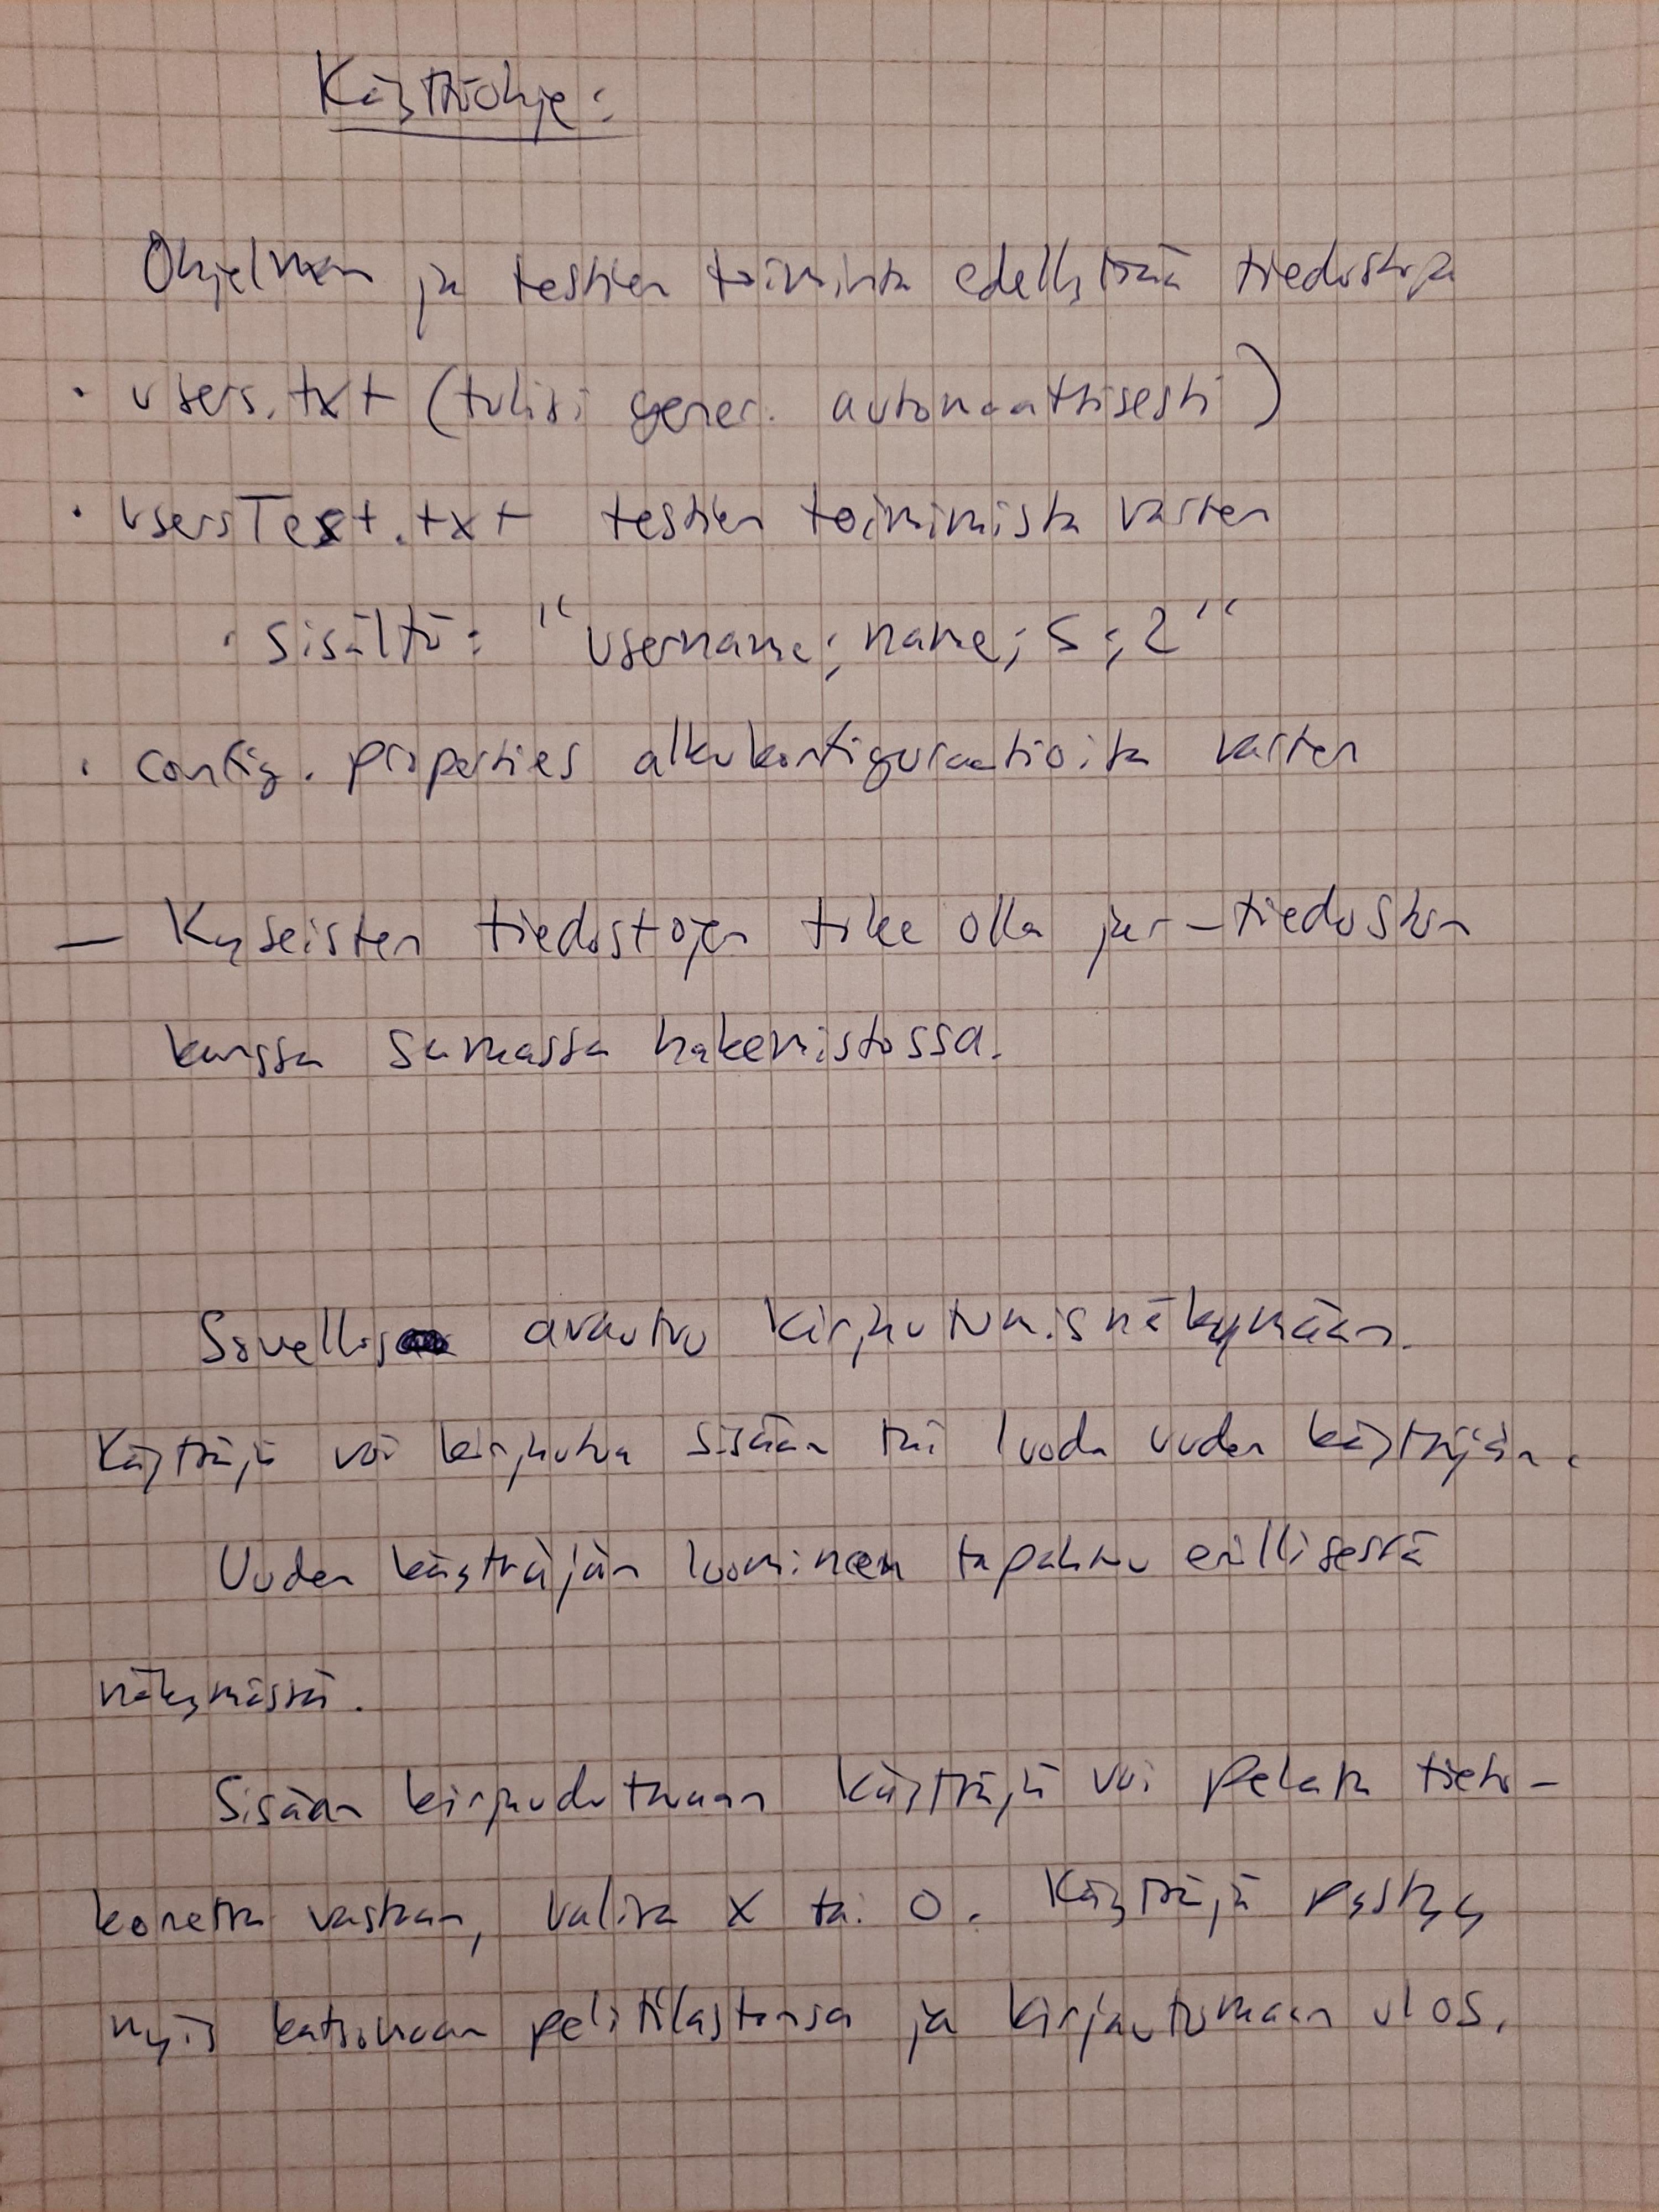 Käyttöohje:
Ohjelman ja testien toiminta edellyttää tiedostoja
· users.txt (tulisi gener. automaattisesti)
· usersTest.txt testien toimimista varten
· sisältö: "username;name;5;2"
· config.properties alkukonfiguraatioita varten
— Kyseisten tiedostojen tulee olla jar-tiedoston
kanssa samassa hakemistossa.
Sovellus avautuu kirjautumisnäkymään.
Käyttäjä voi kirjautua sisään tai luoda uuden käyttäjän.
Uuden käyttäjän luominen tapahtuu erillisessä
näkymässä.
Sisään kirjauduttuaan käyttäjä voi pelata tieto-
konetta vastaan, valita X tai O. Käyttäjä pystyy
myös katsomaan pelitilastonsa ja kirjautumaan ulos.